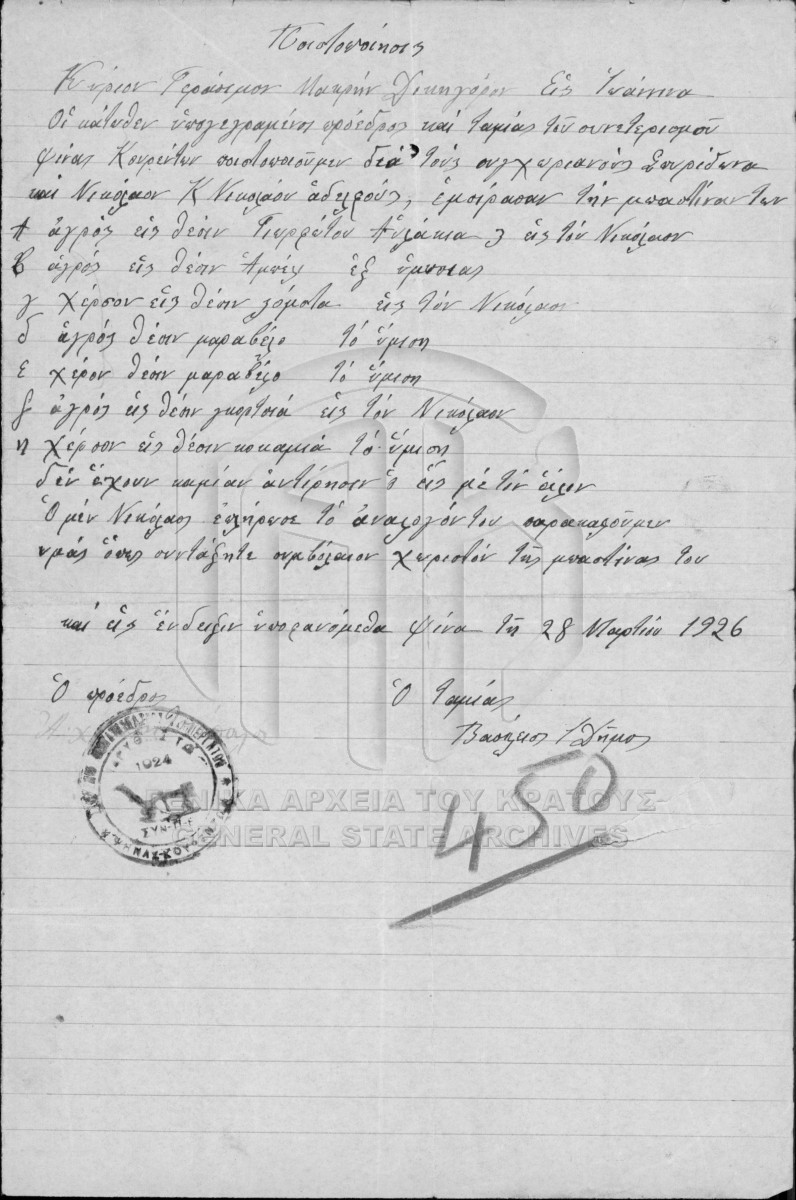 Πιστοποίησις
Κύριον Γεράσιμον Μακρήν Δικηγόρον Εἰς Ἰωάννινα
Οἱ κάτωθεν ὑπογεγραμένοι πρόεδρος καὶ ταμίας τοῦ συνετερισμοῦ
Ψίνας Κουρέντων πιστοποιοῦμεν διά τούς συγχωριανούς Σπυρίδωνα
καὶ Νικόλαον Κ Νικολάου ἀδελφούς, ἐμοίρασαν τήν μπαστίναν των
Α ἀγρός εἰς θέσιν Αὐλάκια εἰς τόν Νικόλαον
β ἀγρός εἰς θέσιν Ἀμπέλ ἐξ
γ χέρσον εἰς θέσιν εἰς τόν Νικόλαον
δ ἀγρός θέσιν μαραβέλο τό ὕμιση
ε χέρον θέσιν μαραβέλο τό ὕμιση
ἀγρός εἰς θέσιν γκορτσιά εἰς τόν Νικόλαον
η χέρσον εἰς θέσιν κοκαμιά τό ὕμιση
δέν ἔχουν καμίαν ἀντίρησιν ὁ εἷς μέ τόν
Ὁ μέν Νικόλαος ἐπλήρωσε τό ἀναλογόν του παρακαλοῦμεν
υμάς ὅπως συντάξητε συμβόλαιον χωριστόν τῆς μπαστίνας του
καὶ εἰς ἔνδειξιν ὑποφαινόμεθα Ψίνα τῇ 28 Μαρτίου 1926
Ὁ πρόεδρος Ὁ ταμίας
Βασίλειος Δῆμος
1924
450
ΓΕΝΙΚΑ ΑΡΧΕΙΑ ΤΟΥ ΚΡΑΤΟΥΣ
GENERAL STATE ARCHIVES